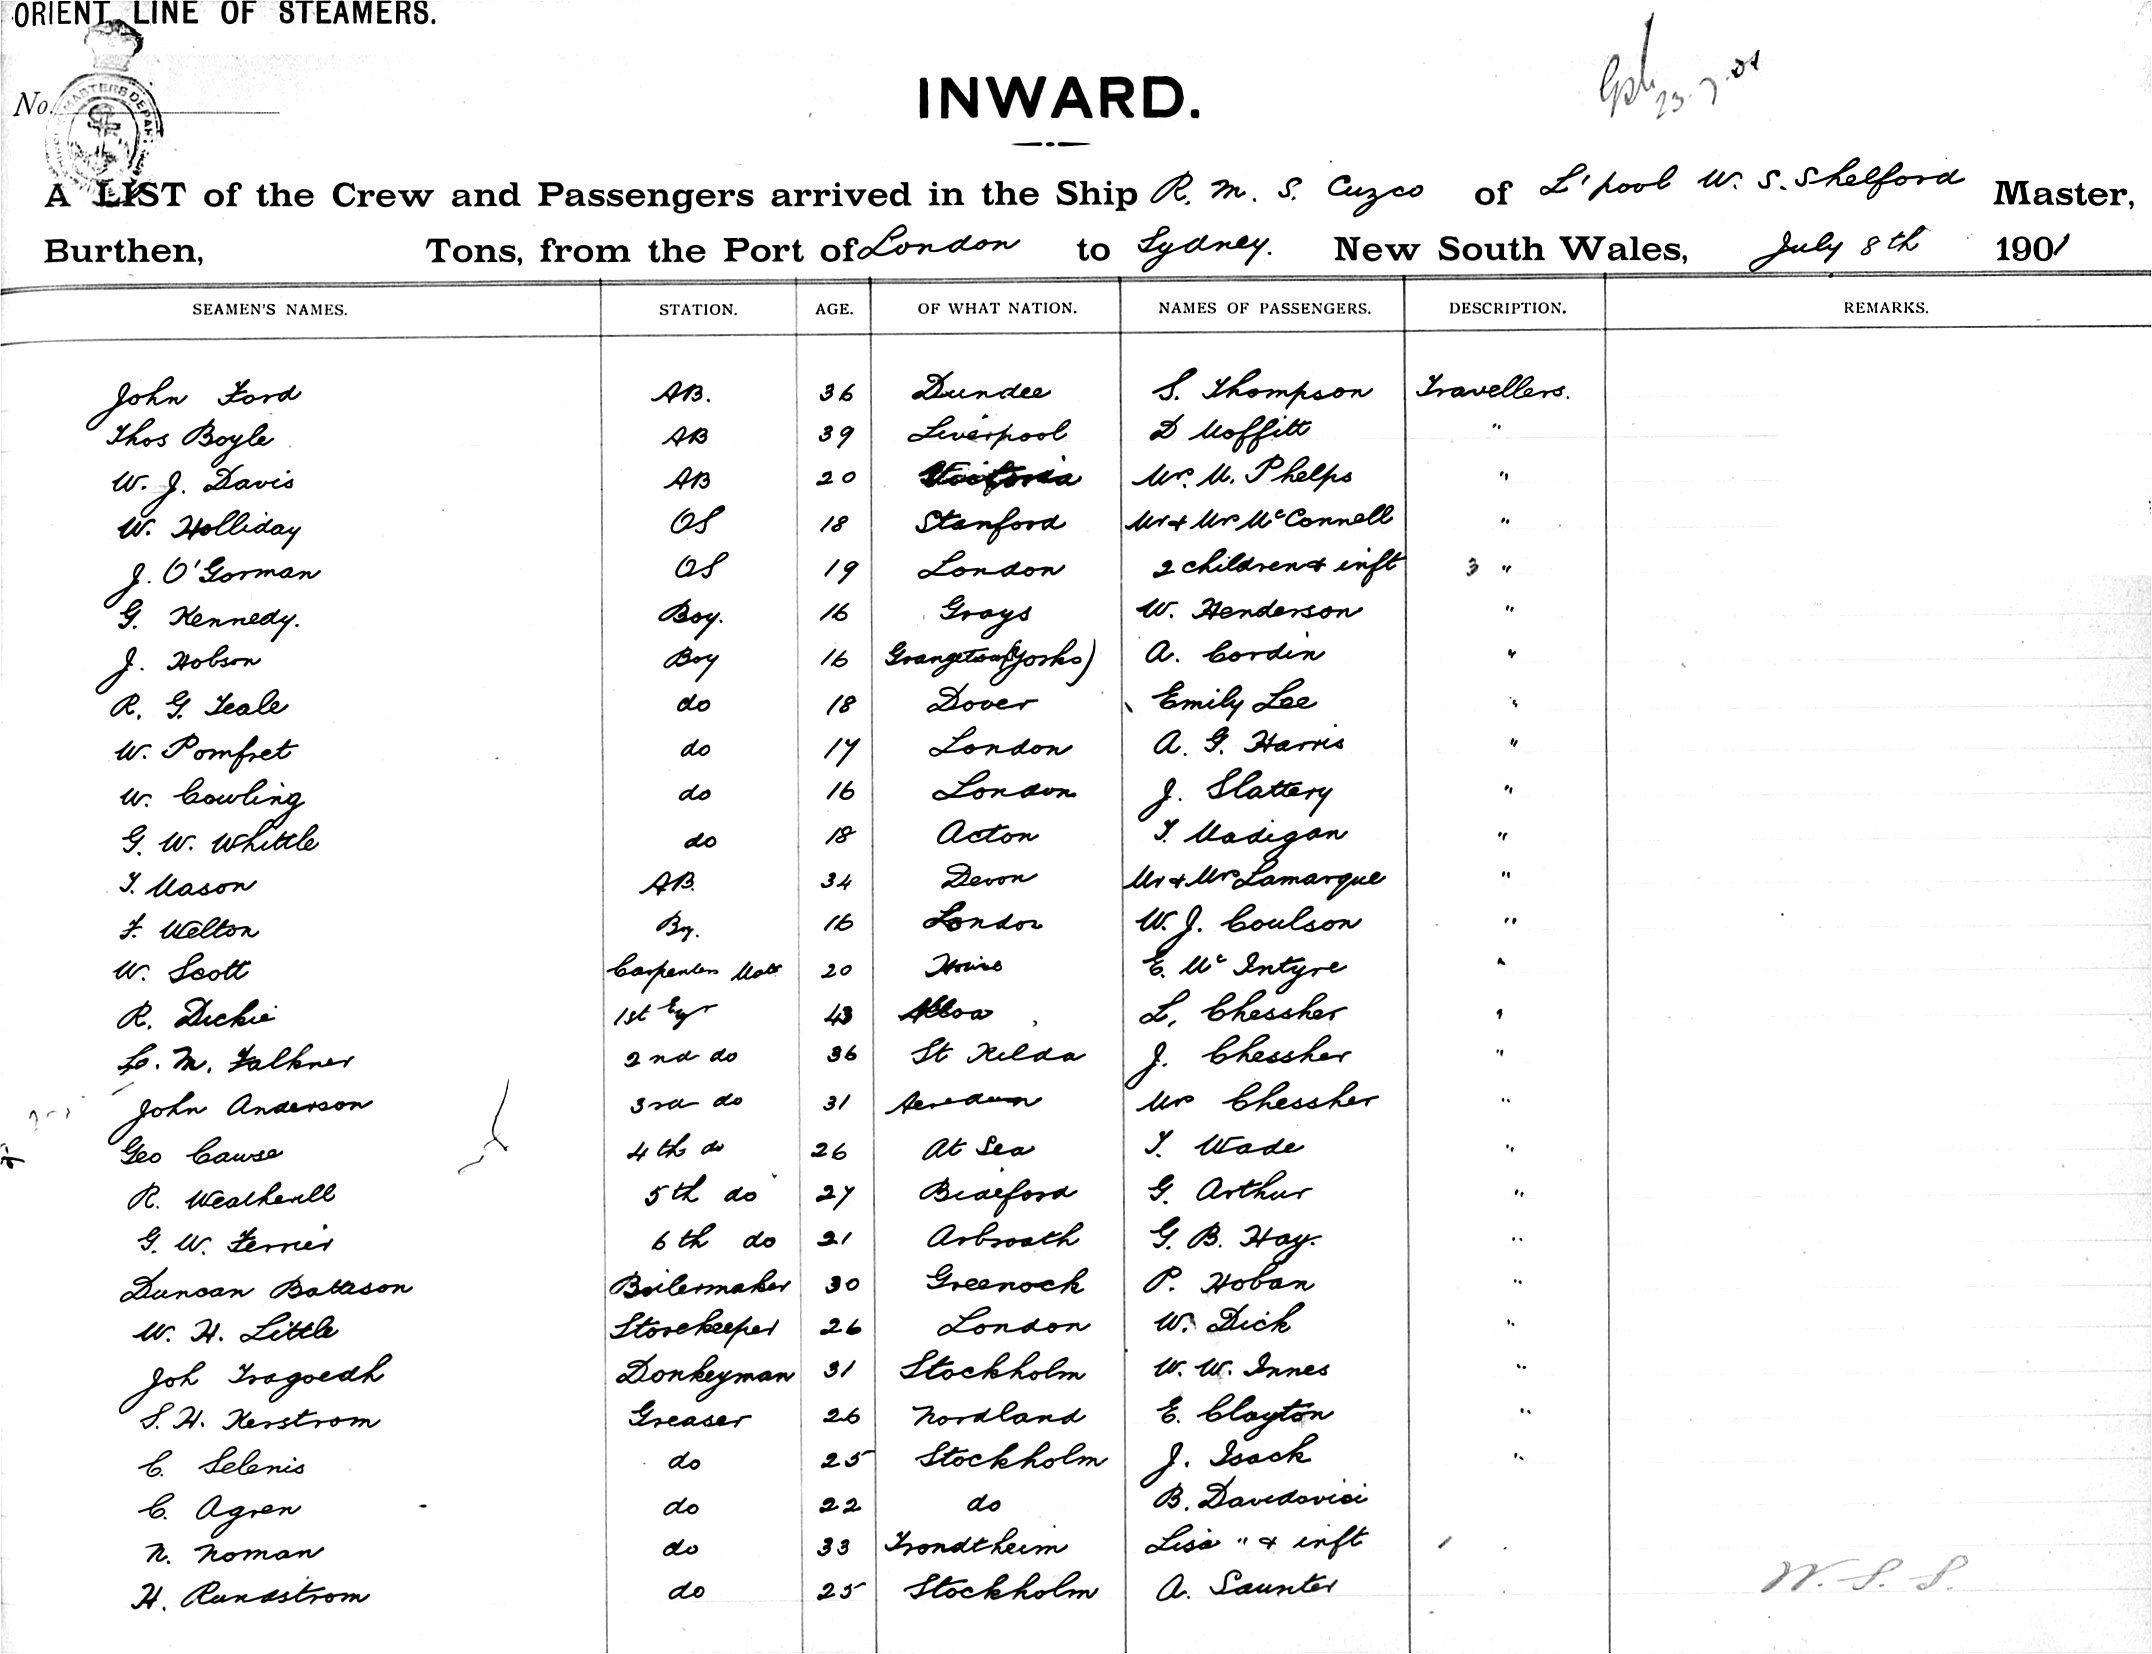 ORIENT LINE OF STEAMERS.
No.
INWARD.
23.7.01
A LIST of the Crew and Passengers arrived in the Ship R. M. S. Cuzco of L'pool W. S. Shelford Master,
Burthen, Tons, from the Port of London to Sydney. New South Wales, July 8th 1901
SEAMEN'S NAMES. STATION. AGE. OF WHAT NATION. NAMES OF PASSENGERS. DESCRIPTION. REMARKS.
John Ford AB. 36 Dundee S. Thompson Travellers.
Thos Boyle AB 39 Liverpool D Moffitt "
W. J. Davis AB 20 Victoria Mr. M. Phelps "
W. Holliday OS 18 Stanford Mr & Mrs McConnell "
J. O'Gorman OS 19 London 2 children & inft 3 "
G. Kennedy. Boy. 16 Grays W. Henderson "
J. Hobson Boy 16 Grangetown (Yorks) A. Cordin "
R. G. Teale do 18 Dover Emily Lee "
W. Pomfret do 17 London A. G. Harris "
W. Cowling do 16 London J. Slattery "
G. W. Whittle do 18 Acton T. Madigan "
T. Mason AB. 34 Devon Mr & Mrs Lamarque "
F. Welton Boy. 16 London W. J. Coulson "
W. Scott Carpenters Mate 20 E. McIntyre "
R. Dickie 1st Engr 43 Alloa L. Chessher "
M. Falkner 2nd do 36 St Kilda J. Chessher "
John Anderson 3rd do 31 Mrs Chessher "
Geo Cawse 4th do 26 At Sea T. Wade "
R. Weatherill 5th do 27 Bideford G. Arthur "
G. W. Ferrier 6th do 21 Arbroath G. B. Hay. "
Duncan Battison Boilermaker 30 Greenock P. Hoban "
W. H. Little Storekeeper 26 London W. Dick "
Joh Tragoedh Donkeyman 31 Stockholm W. W. Innes "
S. H. Kerstrom Greaser 26 Nordland E. Clayton "
C. Selenis do 25 Stockholm J. Isack "
C. Agren do 22 do B. Davidovici
N. Noman do 33 Trondtheim Lisa " & inft 1
H. Rundstrom do 25 Stockholm A. Saunter
W. S. S.